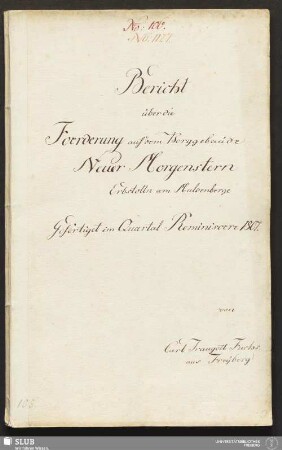 No. 100.
Bericht
über die
Foerderung auf dem Berggebäude
Neuer Morgenstern
Erbstolln am Muldenberge
Gefertiget im Quartal Reminiscere 1807.
von
Carl Traugott
aus Freyberg
100
SLUB
Wir führen Wissen.
UNIVERSITÄTSBIBLIOTHEK
FREIBERG